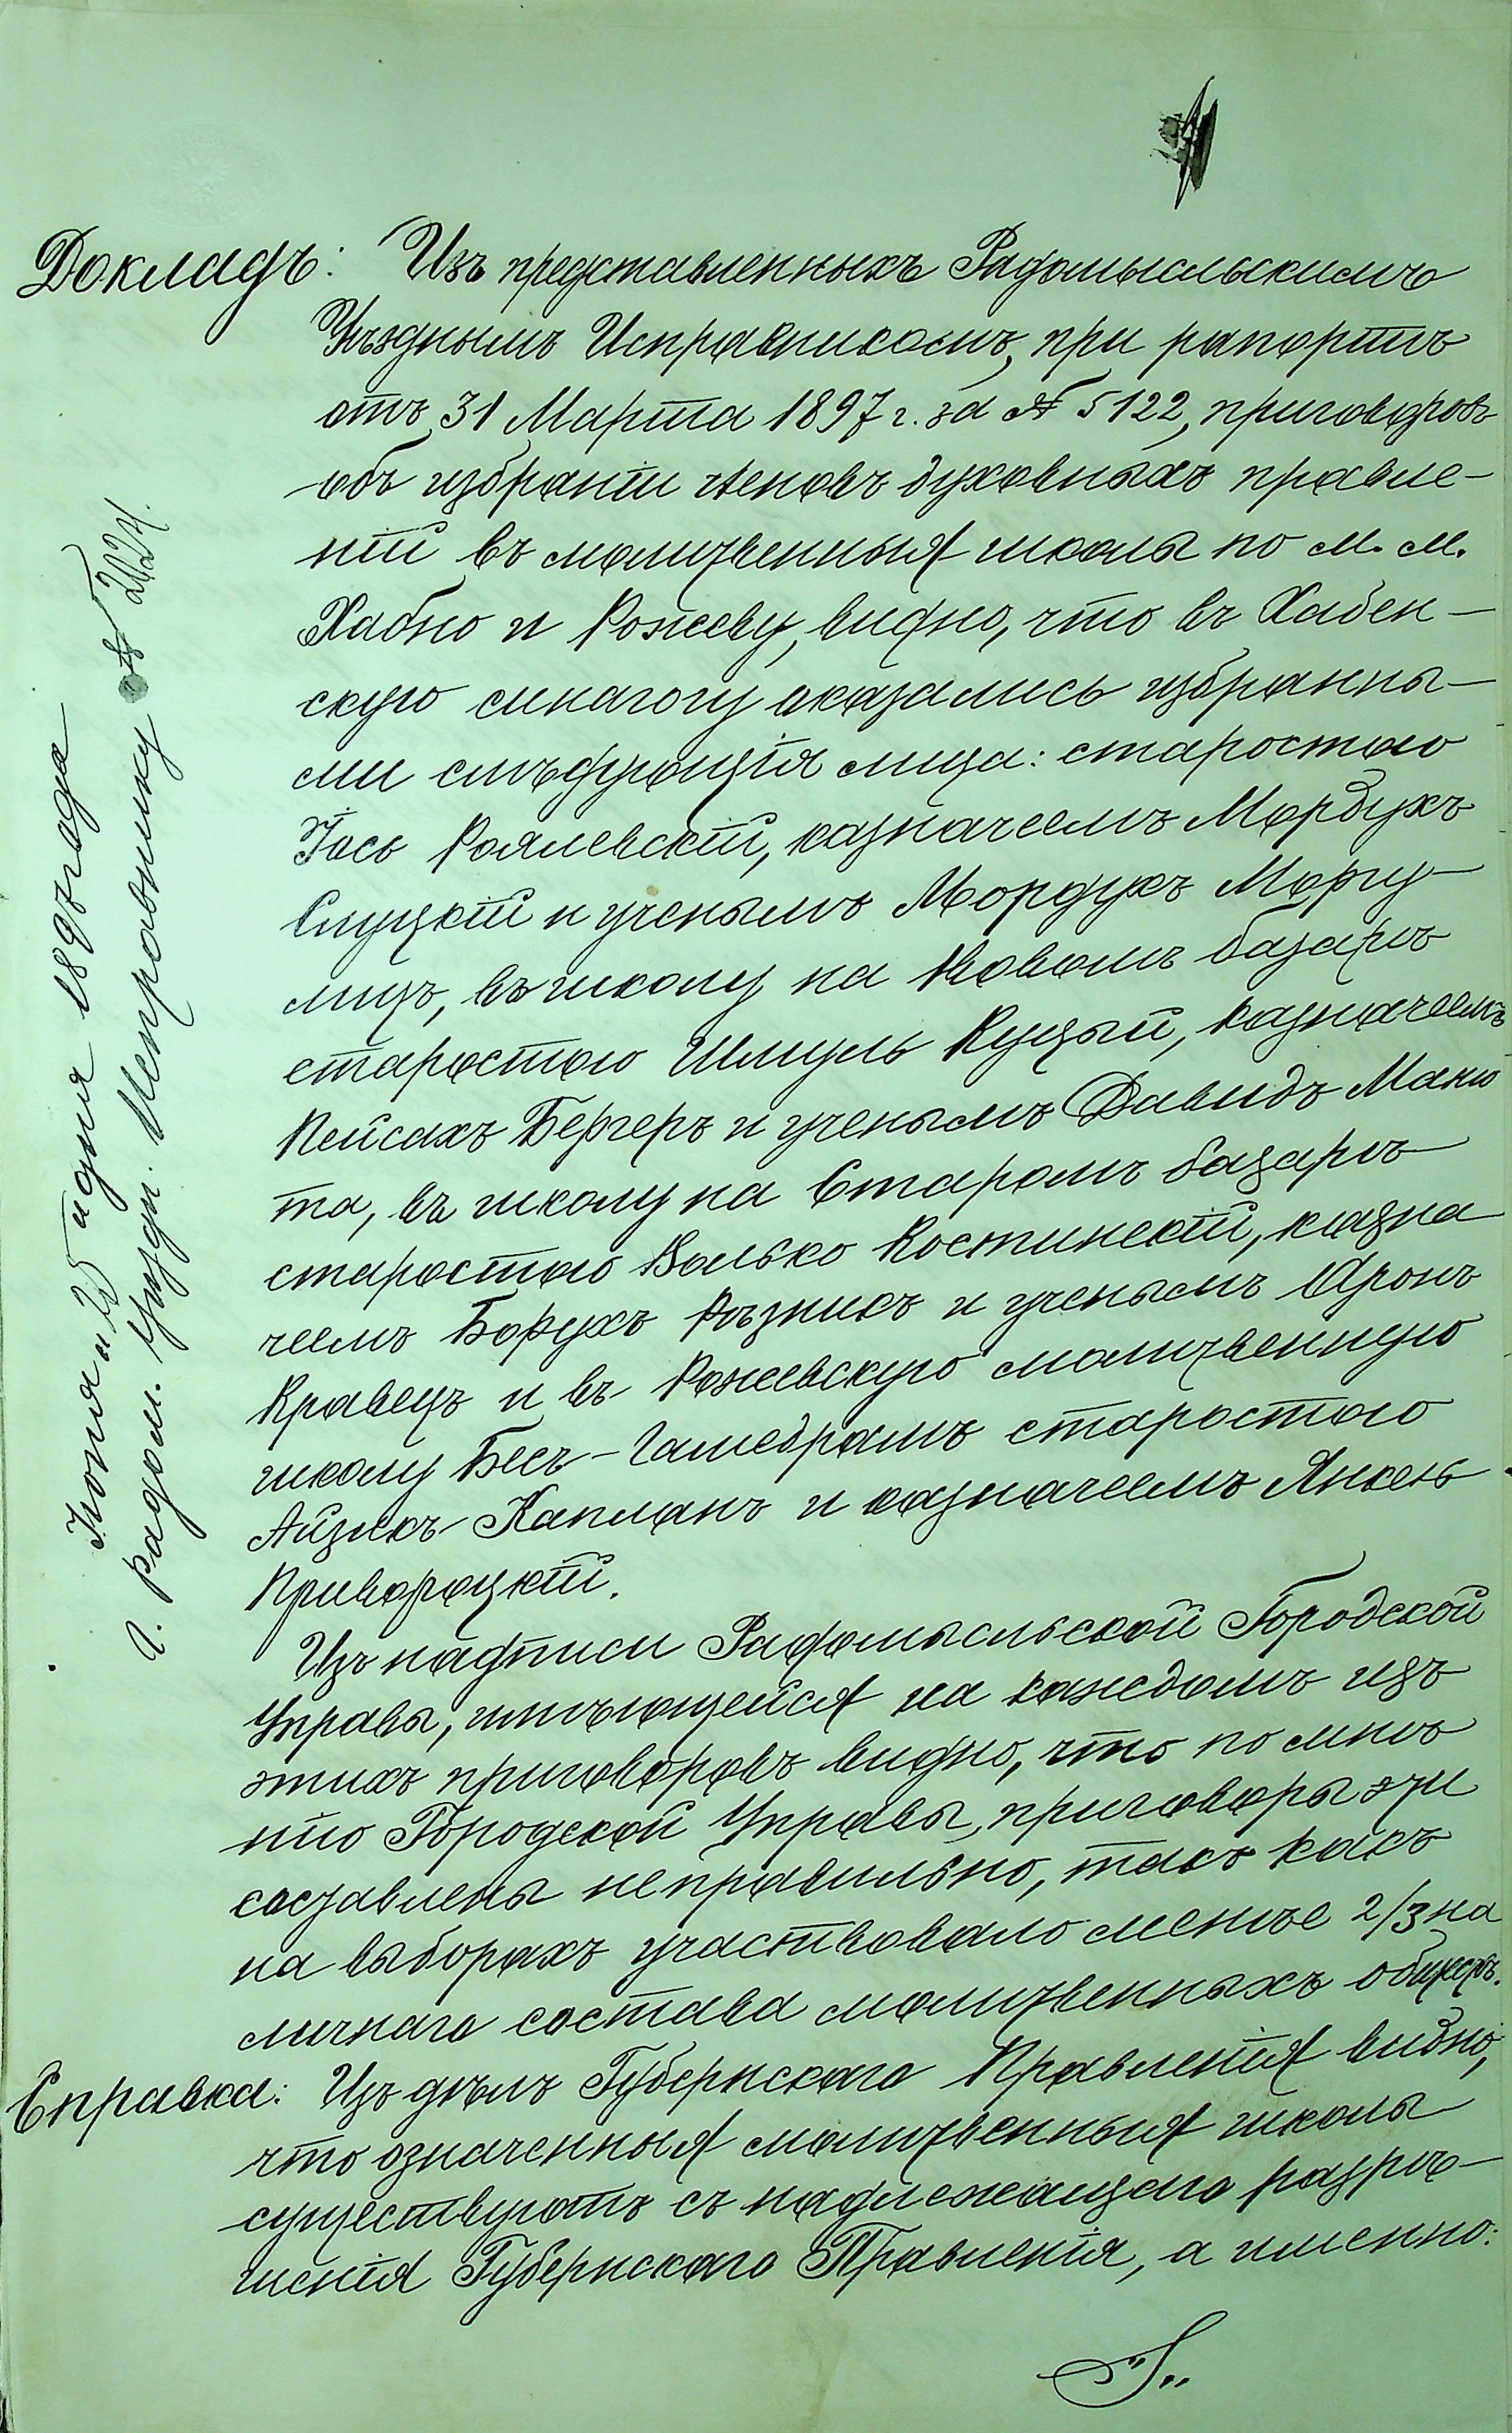 Докладъ: Изъ представленныхъ Радомысльскимъ
Уѣзднымъ Исправникомъ, при рапортѣ
отъ 31 Марта 1897 г. за № 5122, приговоровъ
объ избраніи членовъ духовныхъ правле-
ній въ молитвенныя школы по м. м.
Хабно и Рожеву, видно, что въ Хабен-
скую синагогу оказались избранны-
ми слѣдующія лица: старостою
Іось Роялевскій, казначеемъ Мордухъ
Слуцкій и ученымъ Мордухъ Моргу-
лицъ, въ школу на Новомъ базарѣ
старостою Шмуль Куцый, казначеемъ
Пейсахъ Бергеръ и ученымъ Давидъ Маню
та, въ школу на Старомъ базарѣ
старостою Волько Костинскій, казна
чеемъ Борухъ Рѣзникъ и ученымъ Аронъ
Кравецъ и въ Рожевскую молитвенную
школу Бесъ-Гамедрашъ старостою
Айзикъ Капланъ и казначеемъ Янкель
Привороцкій.
Изъ надписи Радомысльской Городской
Управы, имѣющейся на каждомъ изъ
этихъ приговоровъ видно, что по мнѣ
нію Городской Управы, приговоры эти
составлены неправильно, такъ какъ
на выборахъ участвовало менѣе 2/3 на
личнаго состава молитвенныхъ обществъ.
Справка: Изъ дѣлъ Губернскаго Правленія видно,
что означенныя молитвенныя школы
существуютъ съ надлежащаго разрѣ-
шенія Губернскаго Правленія, а именно:
Іюня 25 дня 1897 года
г. Радом. Уѣздн. Исправнику №